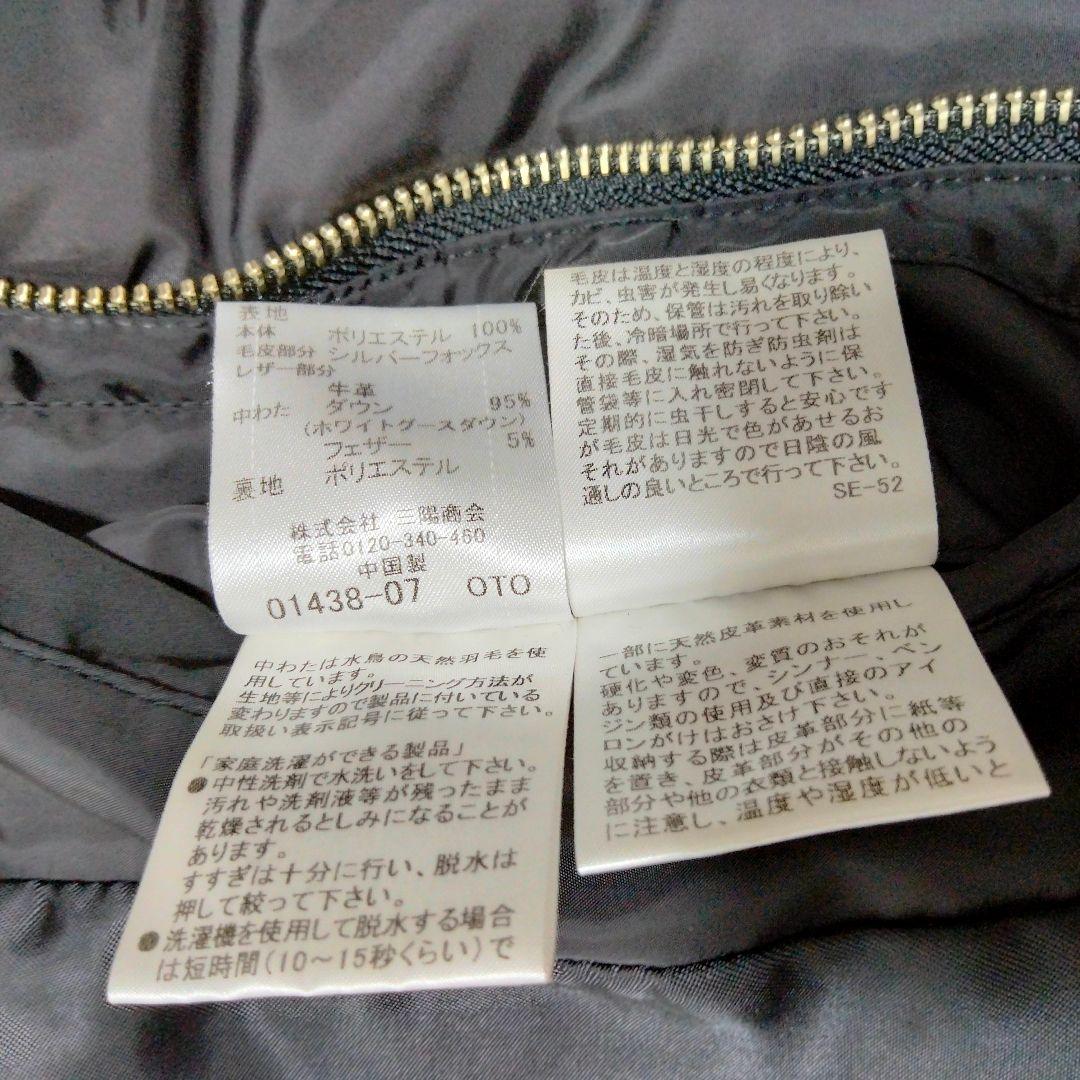 表地
本体 ポリエステル 100%
毛皮部分 シルバーフォックス
レザー部分
牛革
中わた ダウン 95%
(ホワイトグースダウン)
フェザー 5%
裏地 ポリエステル
株式会社 三陽商会
電話0120-340-460
中国製
01438-07 OTO
毛皮は温度と湿度の程度により、
カビ、虫害が発生し易くなります。
そのため、保管は汚れを取り除い
た後、冷暗場所で行って下さい。
その際、湿気を防ぎ防虫剤は
直接毛皮に触れないように保
管袋等に入れ密閉して下さい。
定期的に虫干しすると安心です
が毛皮は日光で色があせるお
それがありますので日陰の風
通しの良いところで行って下さい。
SE-52
中わたは水鳥の天然羽毛を使
用しています。
生地等によりクリーニング方法が
変わりますので製品に付いている
取扱い表示記号に従って下さい。
「家庭洗濯ができる製品」
●中性洗剤で水洗いをして下さい。
汚れや洗剤液等が残ったまま
乾燥されるとしみになることが
あります。
すすぎは十分に行い、脱水は
押して絞って下さい。
●洗濯機を使用して脱水する場合
は短時間(10～15秒くらい)で
一部に天然皮革素材を使用し
ています。
硬化や変色、変質のおそれが
ありますので、シンナー、ベン
ジン類の使用及び直接のアイ
ロンがけはおさけ下さい。
収納する際は皮革部分に紙等
を置き、皮革部分がその他の
部分や他の衣類と接触しないよう
に注意し、温度や湿度が低いと